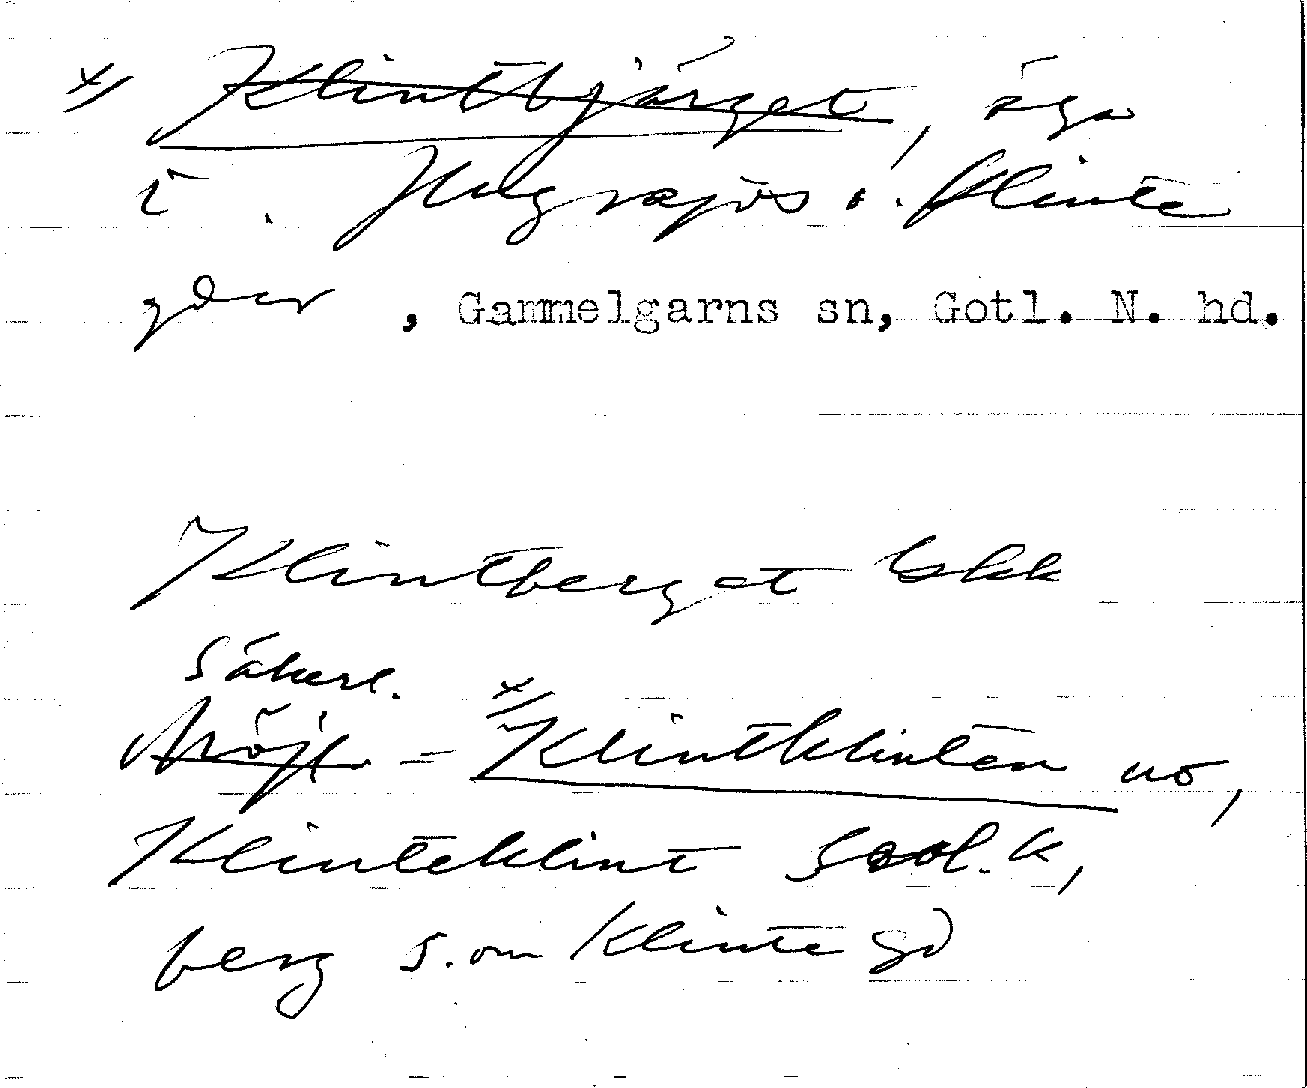 x/ Klintbjärget, äga
i Hugrajvs o. Klinte
gdar, Gammelgarns sn, Gotl. N. hd.
Klintberget Ekk
säkerl.
Möjl = x/ Klintklinten uo,
Klinteklint Säol. k,
berg S. om Klinte gd